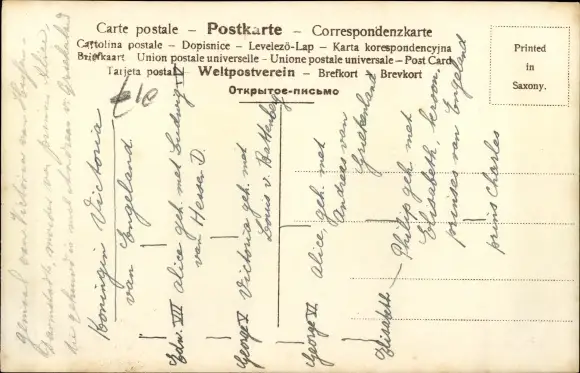 Carte postale – Postkarte – Correspondenzkarte
Cartolina postale – Dopisnice – Levelező-Lap – Karta korespondencyjna
Briefkaart Union postale universelle – Unione postale universale – Post Card
Tarjeta postal – Weltpostverein – Brefkort – Brevkort
Открытое-письмо
Printed
in
Saxony.
Gemaal van Victoria van
moeder van prinses Alice
die gehuwd is met Andreas v. Griekenland
Koningin Victoria
van Engeland
Edw. VII Alice geh. met Ludwig IV
van Hessen D.
George V Victoria geh. met
Louis v. Battenberg
George VI Alice, geh. met
Andreas van
Griekenland
Elisabeth — Philip geh. met
Elisabeth, kroon
prinses van Engeland
prins Charles